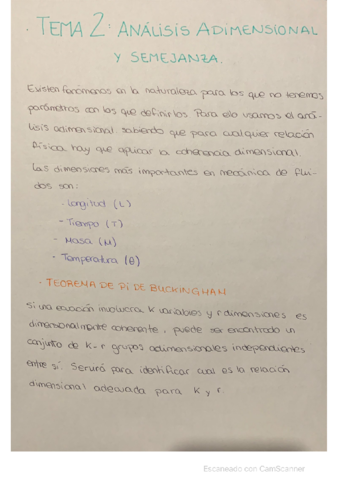 · TEMA 2: ANÁLISIS ADIMENSIONAL
Y SEMEJANZA.
Existen fenómenos en la naturaleza para los que no tenemos
parámetros con los que definirlos. Para ello usamos el aná-
lisis adimensional sabiendo que para cualquier relación
física hay que aplicar la coherencia dimensional.
Las dimensiones más importantes en mecánica de flui-
dos son:
- Longitud (L)
- Tiempo (T)
- Masa (M)
- Temperatura (θ)
· TEOREMA DE PI DE BUCKINGHAM
Si una ecuación involucra K variables y r dimensiones es
dimensionalmente coherente, puede ser encontrado un
conjunto de K-r grupos adimensionales independientes
entre sí. Servirá para identificar cual es la relación
dimensional adecuada para K y r.
Escaneado con CamScanner